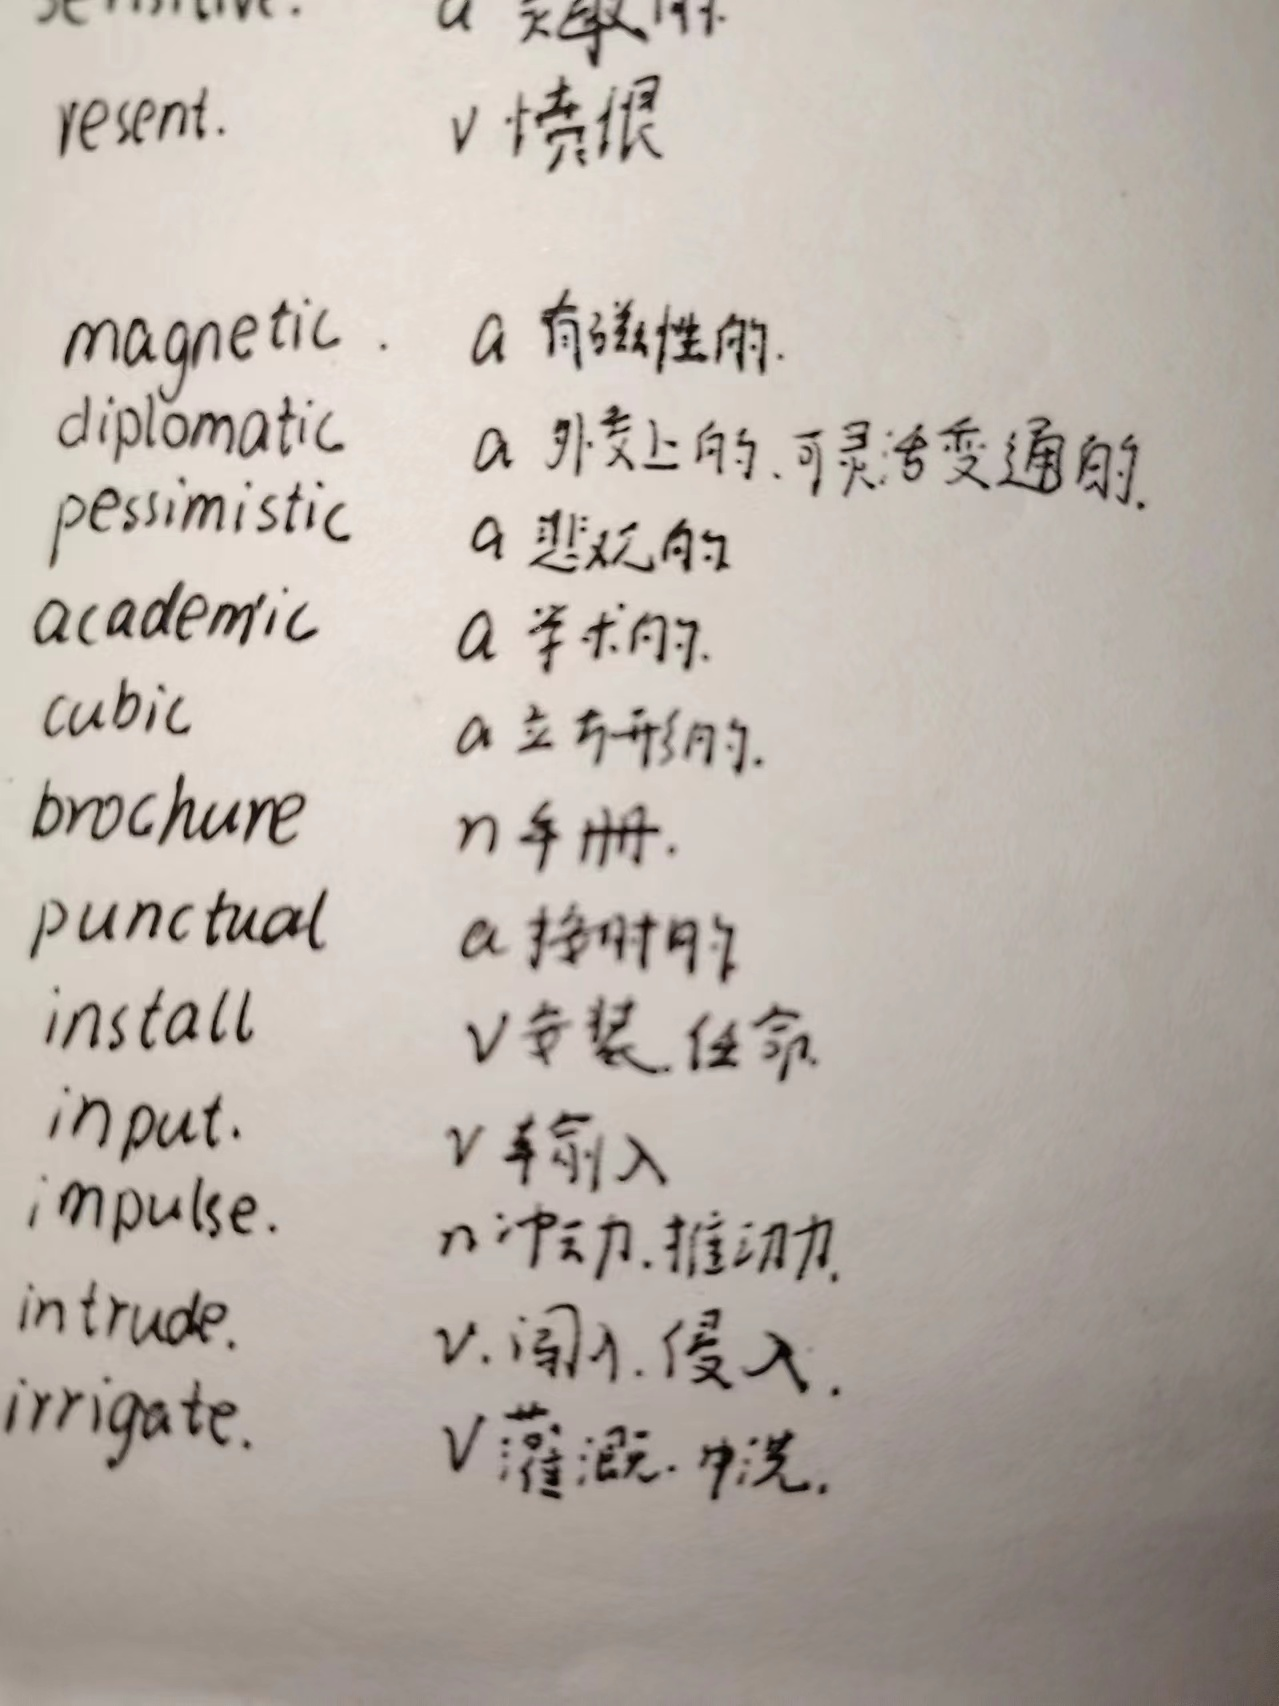 sensitive. a 灵敏的.
resent. v 愤恨
magnetic. a 有磁性的.
diplomatic a 外交上的、可灵活变通的.
pessimistic a 悲观的
academic a 学术的.
cubic a 立方形的.
brochure n 手册.
punctual a 按时的
install v 安装.任命.
input. v 输入
impulse. n 冲动.推动力.
intrude. v.闯入.侵入.
irrigate. v 灌溉.冲洗.